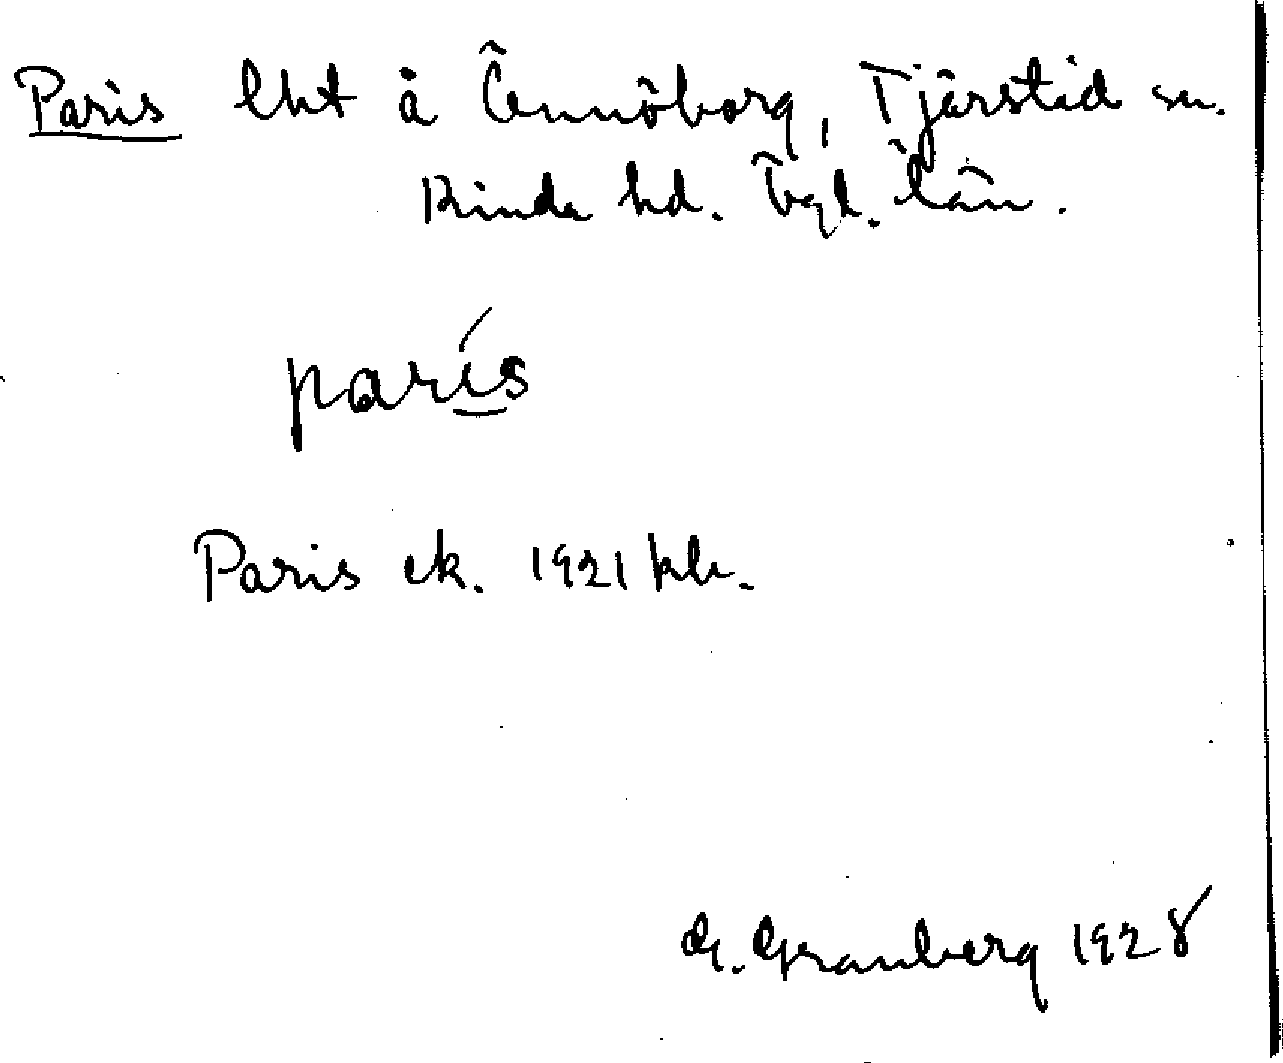 Paris lht å Tjärstad sn.
Kinda hd. Ögl. län.
parís
Paris ek. 1921
G. Granberg 1928